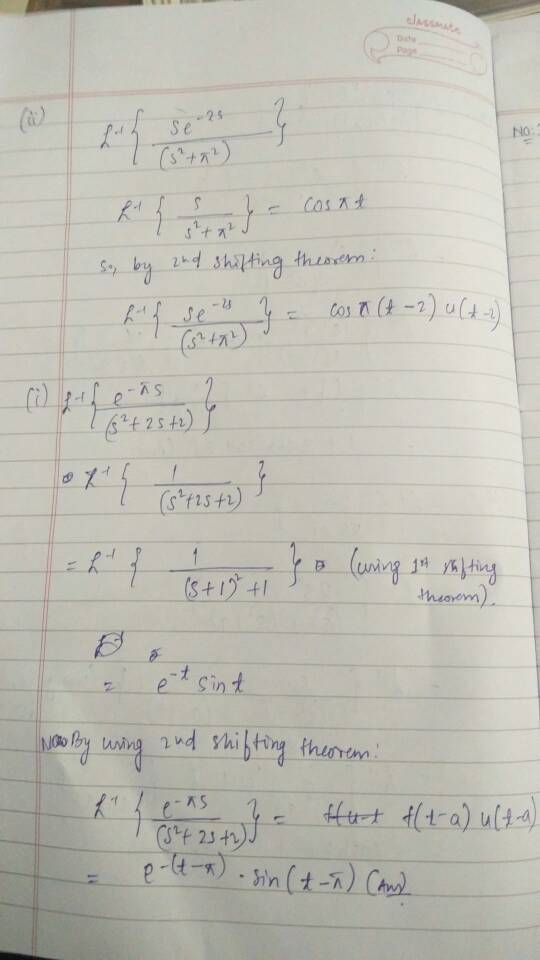 classmate
Date
Page
(ii) L⁻¹{ se^-2s / (s²+π²) }
NO:
L⁻¹ { s / s²+π² } = cos π t
So, by 2nd shifting theorem:
L⁻¹{ se^-2s / (s²+π²) } = cos π (t-2) u(t-2)
(i) L⁻¹{ e^-πs / (s²+2s+2) }
L⁻¹ { 1 / (s²+2s+2) }
= L⁻¹ { 1 / (s+1)²+1 } (using 1st shifting
theorem).
= e^-t sint
Now By using 2nd shifting theorem:
L⁻¹ { e^-πs / (s²+2s+2) } = f(t-a) u(t-a)
= e^-(t-π) · sin(t-π) (Ans)